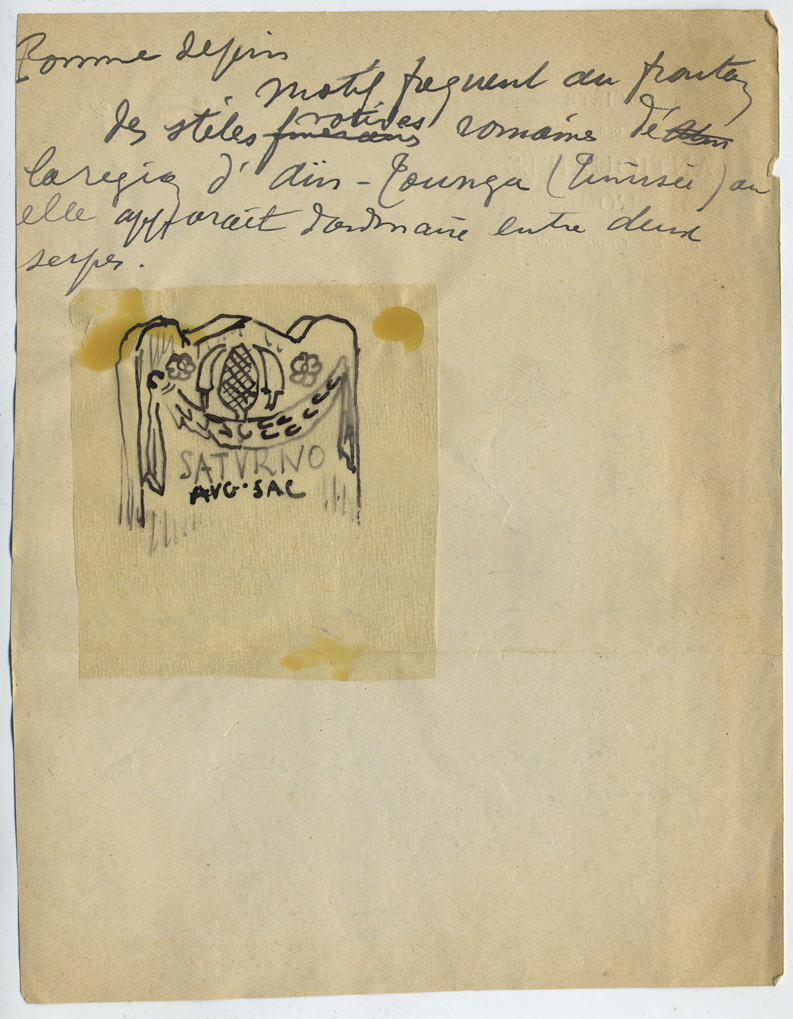 Pomme de pin
motif frequent au fronton
des stèles funéraires votives romaines de
la région d'Aïn-Tounga (Tunisie) ou
elle apparait d'ordinaire entre deux
serpes.
SATVRNO
AVG·SAC